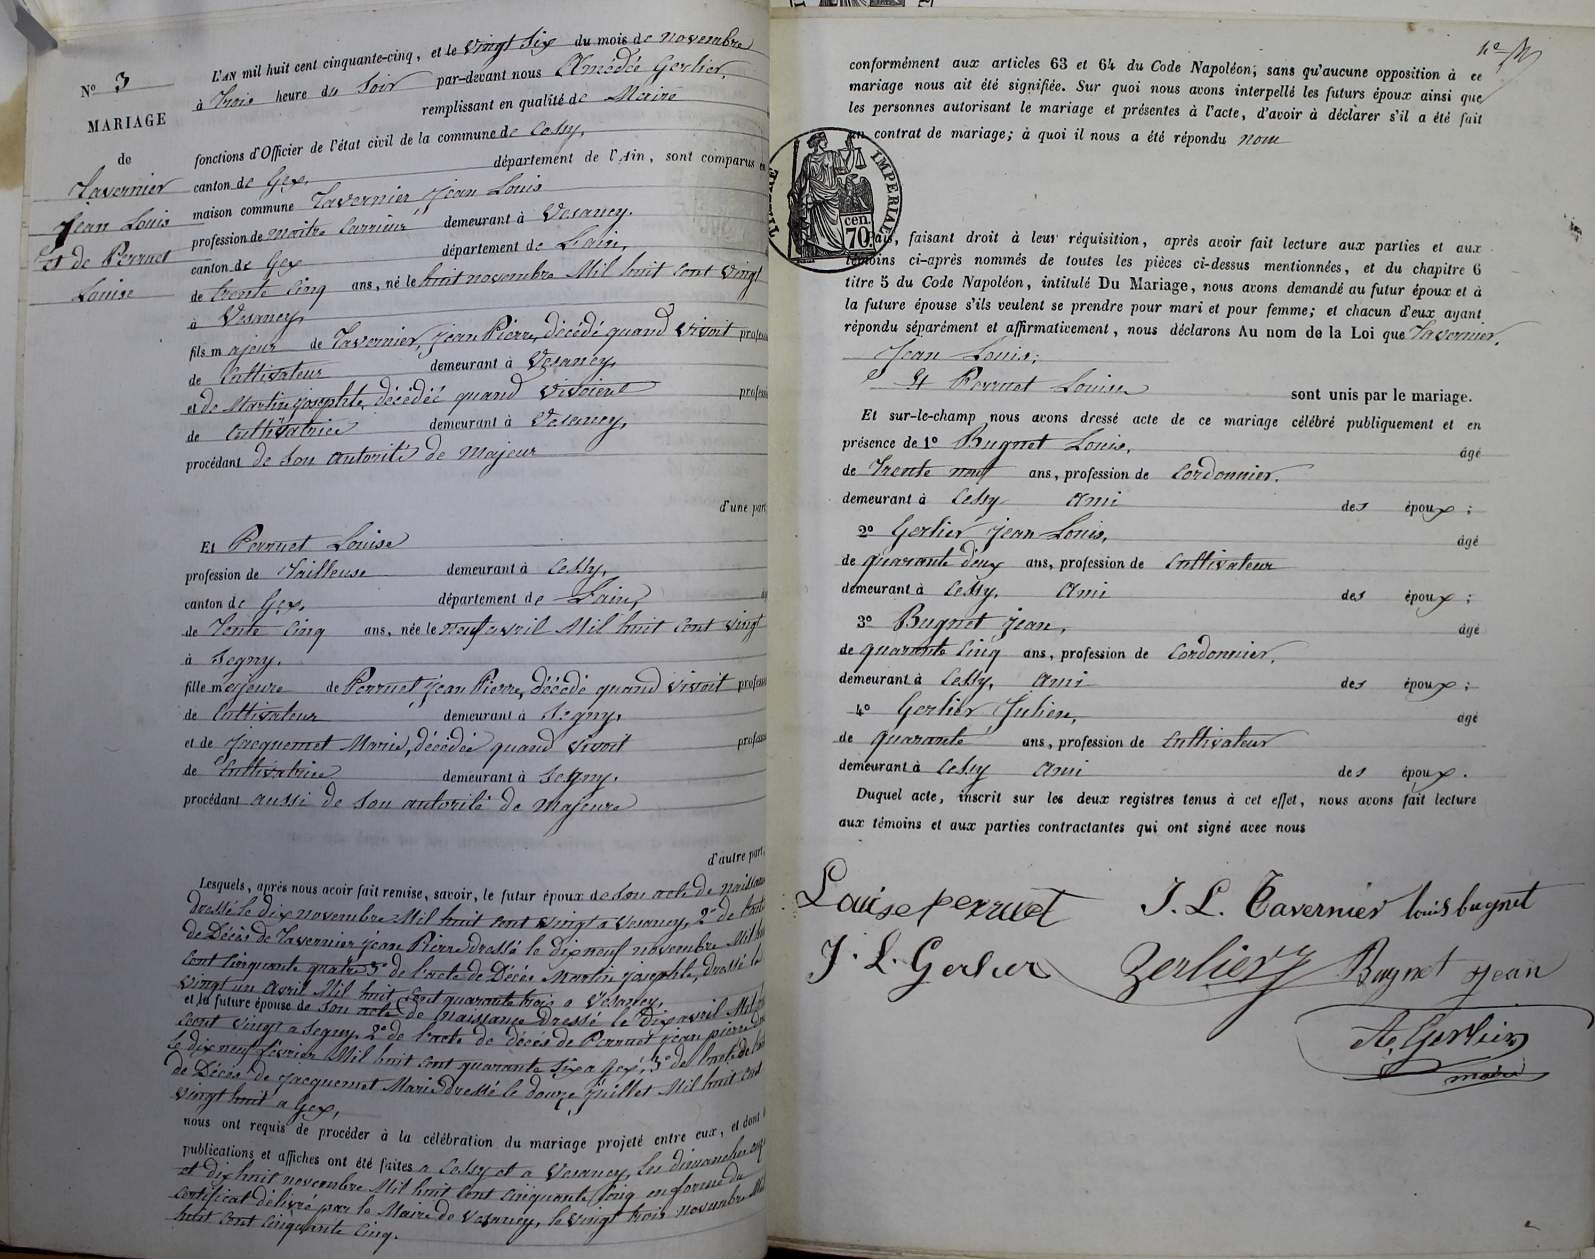 N° 3
MARIAGE
de
Tavernier
Jean Louis
et de Perruet
Louise
L'AN mil huit cent cinquante-cinq, et le vingt Six du mois de novembre
à Trois heure du Soir par-devant nous Amédée Gerlier,
remplissant en qualité de Maire
fonctions d'Officier de l'état civil de la commune de Cessy,
canton de Gex, département de l'Ain, sont comparus en
maison commune Tavernier Jean Louis
profession de Maître Carrieur demeurant à Vesancy.
canton de Gex département de Lain,
de trente Cinq ans, né le huit novembre Mil huit Cent vingt
à Vesancy,
fils majeur de Tavernier, Jean Pierre, décédé quand vivoit profession
de Cultivateur demeurant à Vesancy,
et de Martin josephte, décédéé quand vivoient profession
de Cultivatrice demeurant à Vesancy,
procédant de son autorité de majeur
d'une part
Et Perruet Louise
profession de Tailleuse demeurant à Cessy,
canton de Gex, département de Lain,
de Trente Cinq ans, née le neuf avril Mil huit Cent vingt
à Segny,
fille majeure de Perruet Jean Pierre, décédé quand vivoit profession
de Cultivateur demeurant à Segny,
et de Jacquemet Marie, décédée quand vivoit profession
de Cultivatrice demeurant à Segny,
procédant aussi de son autorité de majeure
d'autre part.
Lesquels, après nous avoir fait remise, savoir, le futur époux de son acte de naissance
dressé le dix novembre Mil huit cent vingt a Vesancy, 2° de l'acte
de Décès de Tavernier Jean Pierre dressé le dix neuf novembre Mil huit
Cent Cinquante quatre 3° de l'acte de Décès Martin josephte, dressé le
vingt un avril Mil huit Cent quarante trois a Vesancy,
et la future épouse de son acte de naissance dressé le Dix avril Mil huit
Cent vingt a Segny, 2° de l'acte de décès de Perruet jean pierre
le dix neuf février Mil huit cent quarante Six a Gex, 3° de l'acte
de Décès de Jacquemet Marie dressé le douze Juillet Mil huit Cent
vingt huit a Gex,
nous ont requis de procéder à la célébration du mariage projeté entre eux, et dont
publications et affiches ont été faites a Cessy et a Vesancy, les dimanches onze
et dix huit novembre Mil huit Cent Cinquante Cinq en forme du
certificat délivré par le Maire de Vesancy, le vingt trois novembre Mil
huit Cent Cinquante Cinq.
conformément aux articles 63 et 64 du Code Napoléon, sans qu'aucune opposition à ce
mariage nous ait été signifiée. Sur quoi nous avons interpellé les futurs époux ainsi que
les personnes autorisant le mariage et présentes à l'acte, d'avoir à déclarer s'il a été fait
un contrat de mariage; à quoi il nous a été répondu non
TIMBRE IMPERIAL
70 cen.
Puis, faisant droit à leur réquisition, après avoir fait lecture aux parties et aux
témoins ci-après nommés de toutes les pièces ci-dessus mentionnées, et du chapitre 6
titre 5 du Code Napoléon, intitulé Du Mariage, nous avons demandé au futur époux et à
la future épouse s'ils veulent se prendre pour mari et pour femme; et chacun d'eux ayant
répondu séparément et affirmativement, nous déclarons Au nom de la Loi que Tavernier,
Jean Louis,
Et Perruet Louise sont unis par le mariage.
Et sur-le-champ nous avons dressé acte de ce mariage célébré publiquement et en
présence de 1° Bugnet Louis, âgé
de Trente neuf ans, profession de Cordonnier,
demeurant à Cessy Ami des époux;
2° Gerlier Jean Louis, âgé
de quarante deux ans, profession de Cultivateur
demeurant à Cessy, Ami des époux;
3° Bugnet Jean, âgé
de quarante Cinq ans, profession de Cordonnier,
demeurant à Cessy, Ami des époux;
4° Gerlier Julien, âgé
de quarante ans, profession de Cultivateur
demeurant à Cessy Ami des époux.
Duquel acte, inscrit sur les deux registres tenus à cet effet, nous avons fait lecture
aux témoins et aux parties contractantes qui ont signé avec nous
Louise perruet J. L. Tavernier louis bugnet
J. L. Gerlier Zerlier J Bugnet Jean
Ae. Gerlier
maire